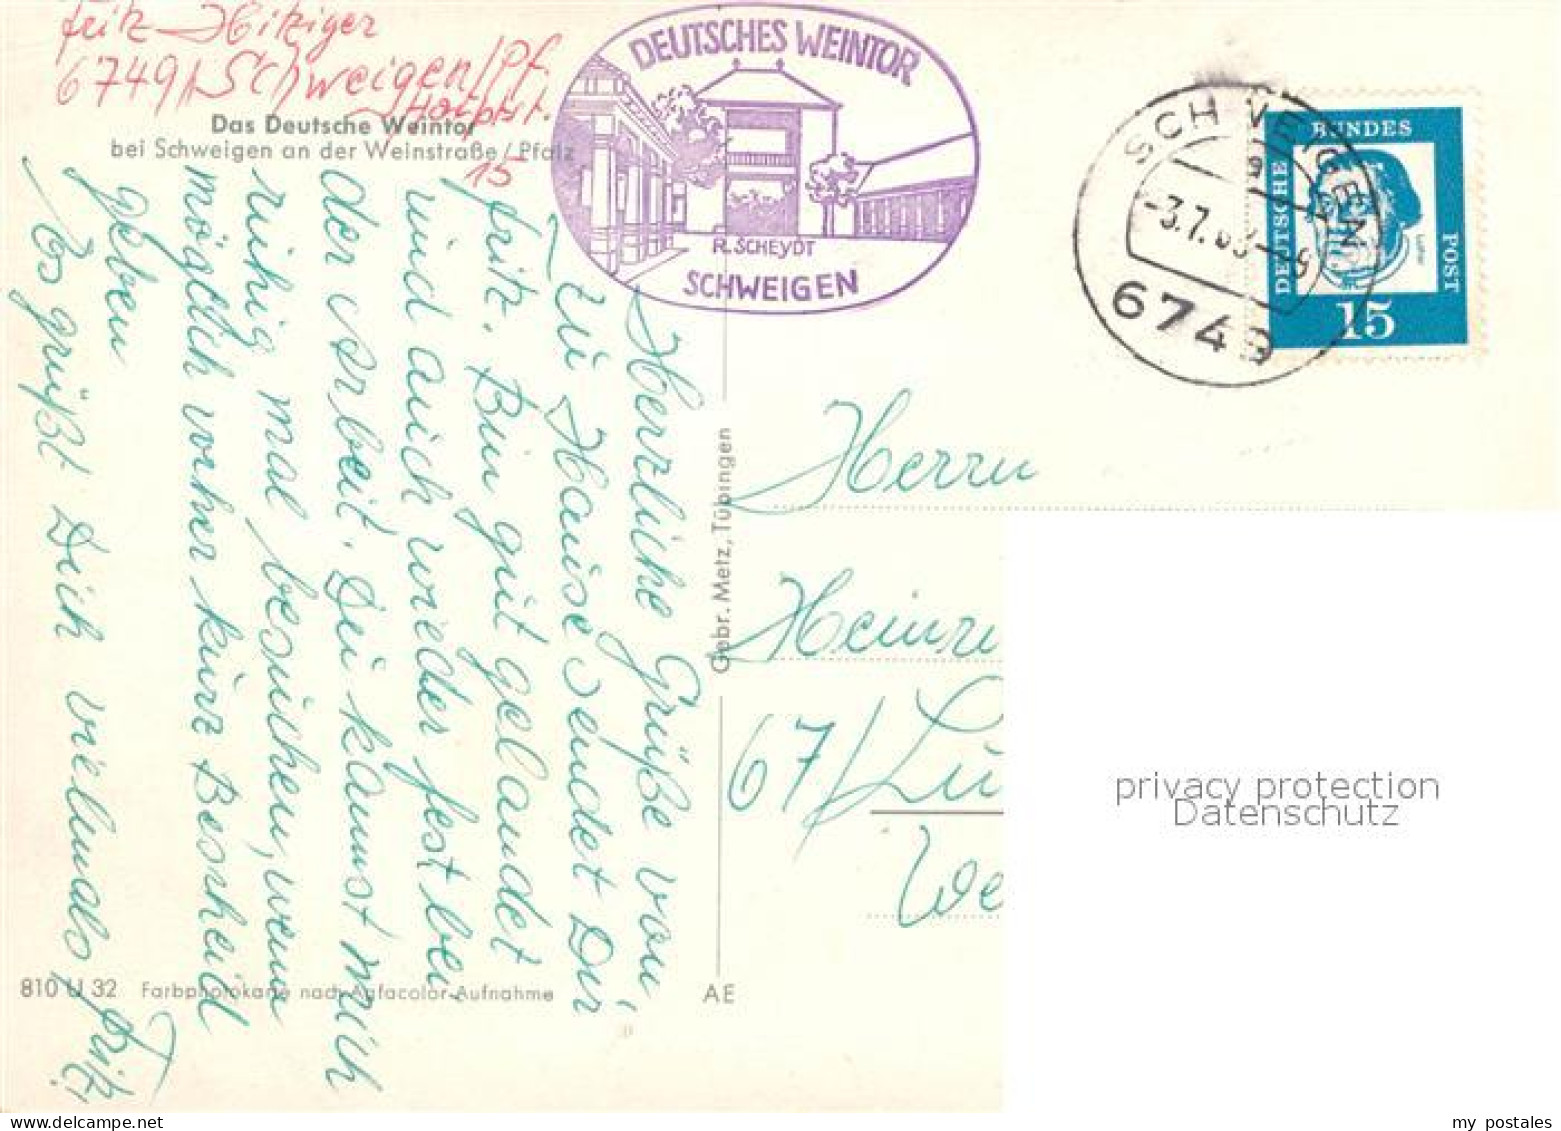 Fritz Hitziger
6749 / Schweigen / Pf.
Hauptst.
15
Das Deutsche Weintor
bei Schweigen an der Weinstraße / Pfalz
DEUTSCHES WEINTOR
R. SCHEYDT
SCHWEIGEN
SCHWEIGEN
a
-3.7.63-
6749
BUNDES
DEUTSCHE
POST
Luther
15
Herzliche Grüße von
zu Hause sendet Dir
Fritz. Bin gut gelandet
und auch wieder fest bei
der Arbeit. Du kannst mich
ruhig mal besuchen, wenn
möglich vorher kurz Bescheid
geben
Es grüßt Dich vielmals
Fritz!
Gebr. Metz, Tübingen
Herrn
Heinri
67 / Lu
We
810 U 32 Farbphotokarte nach Agfacolor-Aufnahme
AE
privacy protection
Datenschutz
my postales